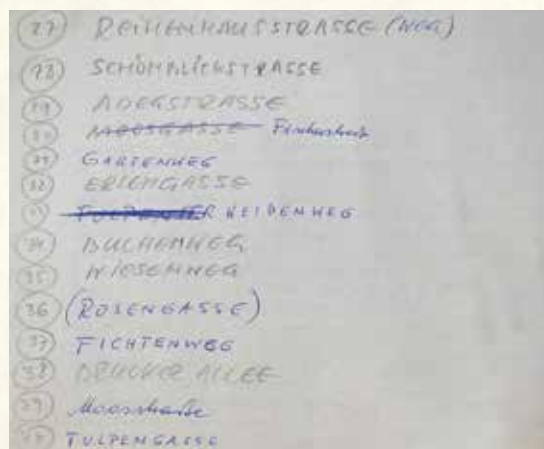 (27) REIHENHAUSSTRASSE (WEG)
(28) SCHÖNBLICKSTRASSE
(29)
(30) MOOSGASSE
(31) GARTENWEG
(32) ERLENGASSE
(33) WEIDENWEG
(34) BUCHENWEG
(35) WIESENWEG
(36) (ROSENGASSE)
(37) FICHTENWEG
(38) ALLEE
(39) Moosstraße
TULPENGASSE